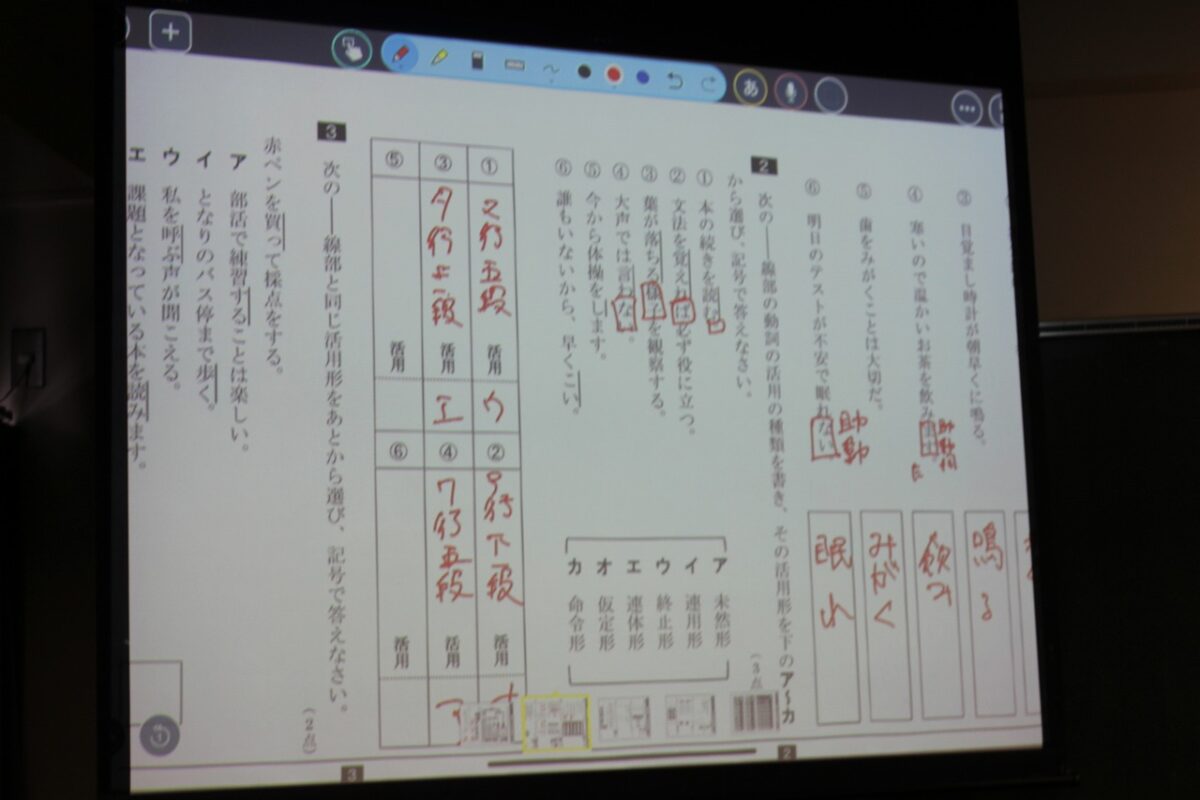 あ
③ 目覚まし時計が朝早くに鳴る。
鳴る
④ 寒いので温かいお茶を飲みます。
助動詞
た
飲み
⑤ 歯をみがくことは大切だ。
みがく
⑥ 明日のテストが不安で眠れない。
助動
眠れ
2 次の――線部の動詞の活用の種類を書き、その活用形を下のア〜カ
から選び、記号で答えなさい。
(3点
① 本の続きを読む。
② 文法を覚えれば必ず役に立つ。
③ 葉が落ちる様子を観察する。
④ 大声では言わない。
⑤ 今から体操をします。
⑥ 誰もいないから、早くこい。
ア 未然形
イ 連用形
ウ 終止形
エ 連体形
オ 仮定形
カ 命令形
① マ行五段 活用 ウ
② ア行下一段 活用 オ
③ タ行上一段 活用 エ
④ ワ行五段 活用 ア
⑤ 活用
⑥ 活用
3 次の――線部と同じ活用形をあとから選び、記号で答えなさい。
(2点)
赤ペンを買って採点をする。
ア 部活で練習することは楽しい。
イ となりのバス停まで歩く。
ウ 私を呼ぶ声が聞こえる。
エ 課題となっている本を読みます。
2
3